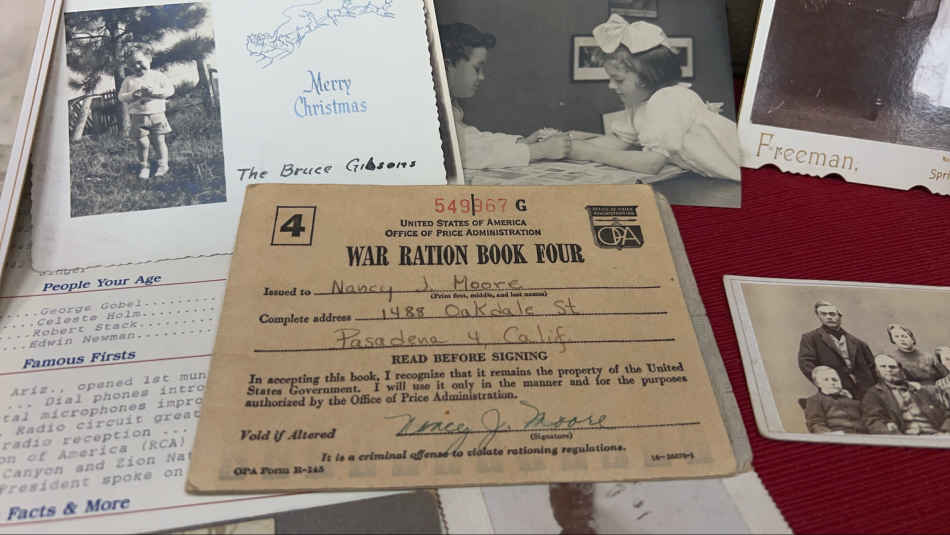 Merry
Christmas
The Bruce Gibsons
Freeman,
Spri
People Your Age
George Gobel..........
Celeste Holm..........
Robert Stack..........
Edwin Newman..........
Famous Firsts
Ariz., opened 1st mun
... Dial phones intro
tal microphones impro
Radio circuit great
radio reception ...
on of America (RCA)
Canyon and Zion Nat
President spoke on
Facts & More
4
549967 G
UNITED STATES OF AMERICA
OFFICE OF PRICE ADMINISTRATION
OFFICE OF PRICE
ADMINISTRATION
OPA
WAR RATION BOOK FOUR
Issued to Nancy J. Moore
(Print first, middle, and last names)
Complete address 1488 Oakdale St
Pasadena 4, Calif.
READ BEFORE SIGNING
In accepting this book, I recognize that it remains the property of the United
States Government. I will use it only in the manner and for the purposes
authorized by the Office of Price Administration.
Void if Altered Nancy J. Moore
(Signature)
It is a criminal offense to violate rationing regulations.
OPA Form R-145